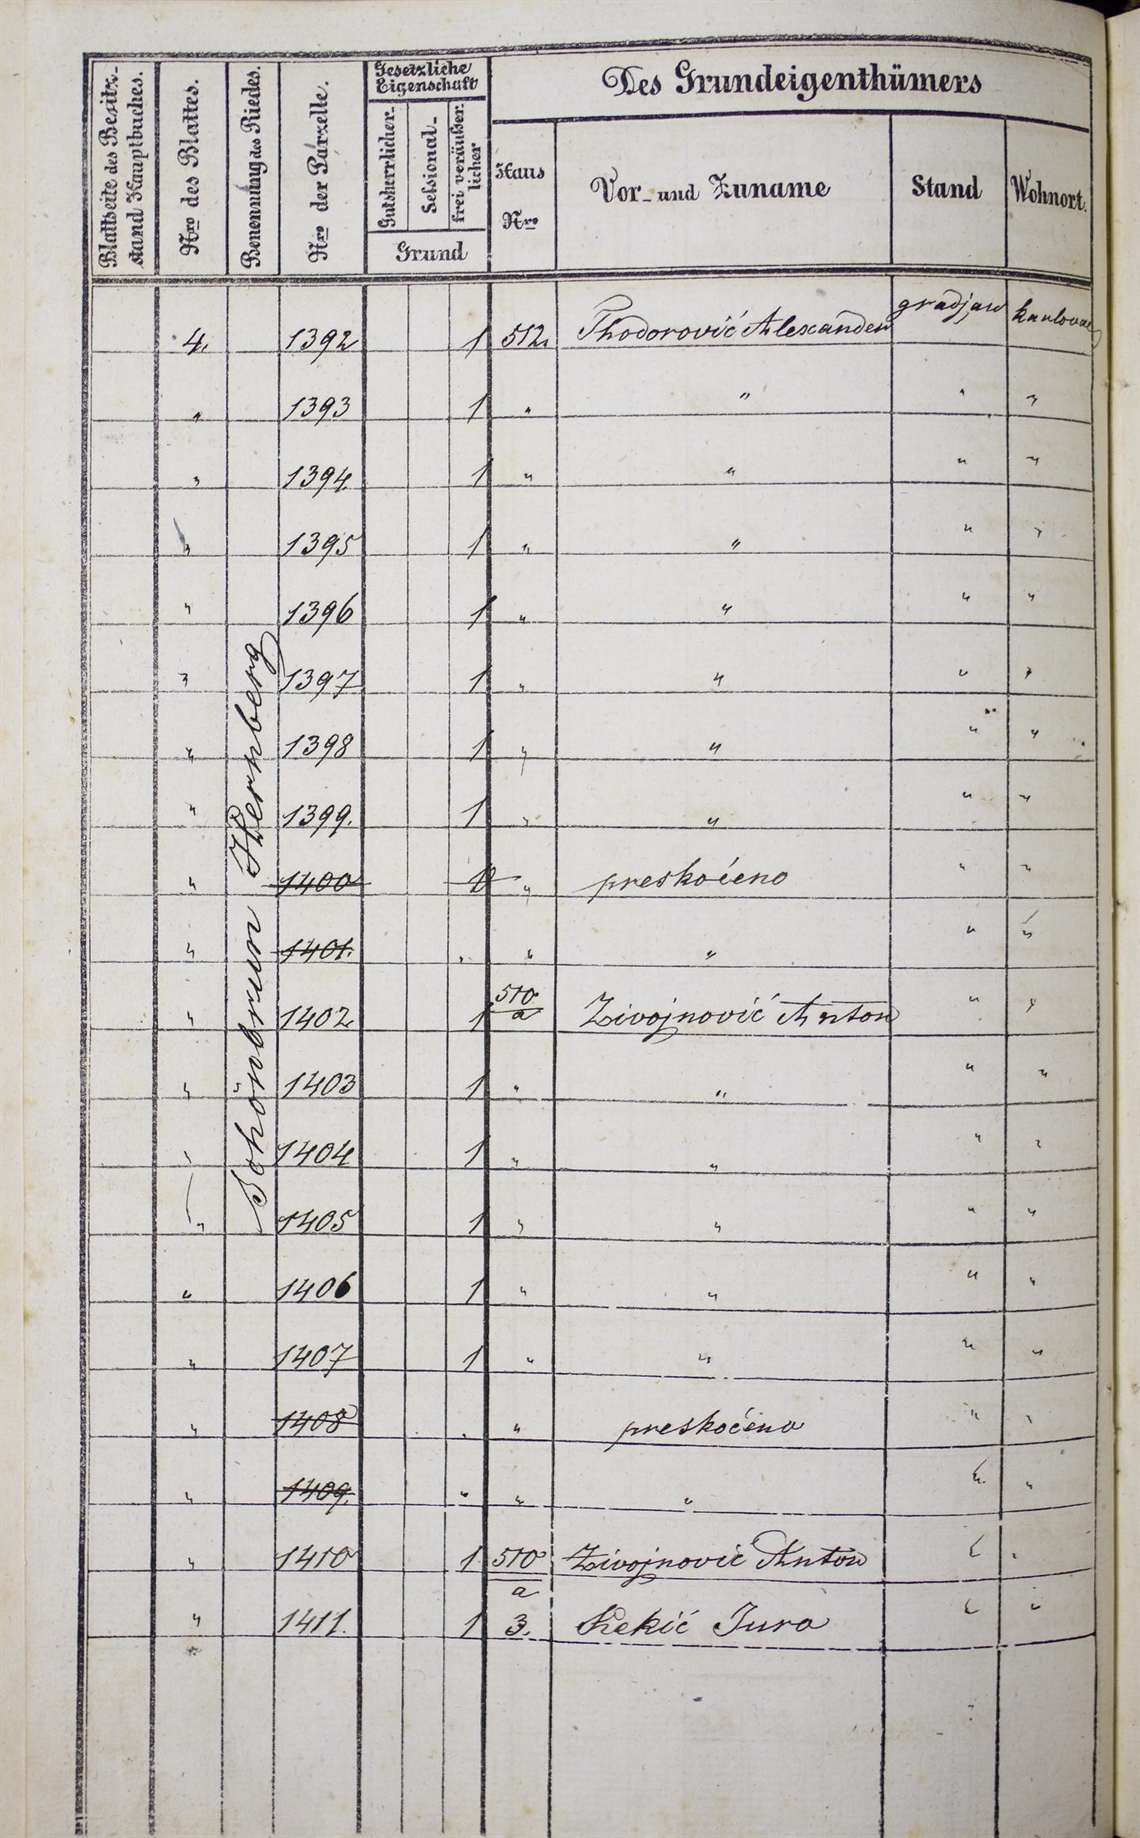 Blattseite des Besitz-stand Hauptbuches.
Nro des Blattes.
Benennung des Riedes.
Nro der Parzelle.
Gesetzliche Eigenschaft
Gutsherrlicher-
Sessional-
frei veräußerlicher
Grund
Des Grundeigenthümers
Haus Nro
Vor- und Zuname
Stand
Wohnort.
Schönbrun Hernberg
4. 1392 1 512. Thodorović Alexander gradjan karlovac
" 1393 1 " " " "
" 1394 1 " " " "
" 1395 1 " " " "
" 1396 1 " " " "
" 1397 1 " " " "
" 1398 1 " " " "
" 1399. 1 " " " "
" 1400 1 " preskoćeno " "
" 1401. . " " " "
" 1402 1 510/a Živojnović Anton " "
" 1403 1 " " " "
" 1404 1 " " " "
" 1405 1 " " " "
" 1406 1 " " " "
" 1407 1 " " " "
" 1408 . " preskoćeno " "
" 1409. " " " " "
" 1410 1 510/a Živojnović Anton " "
" 1411. 1 3. Kekić Jura " "